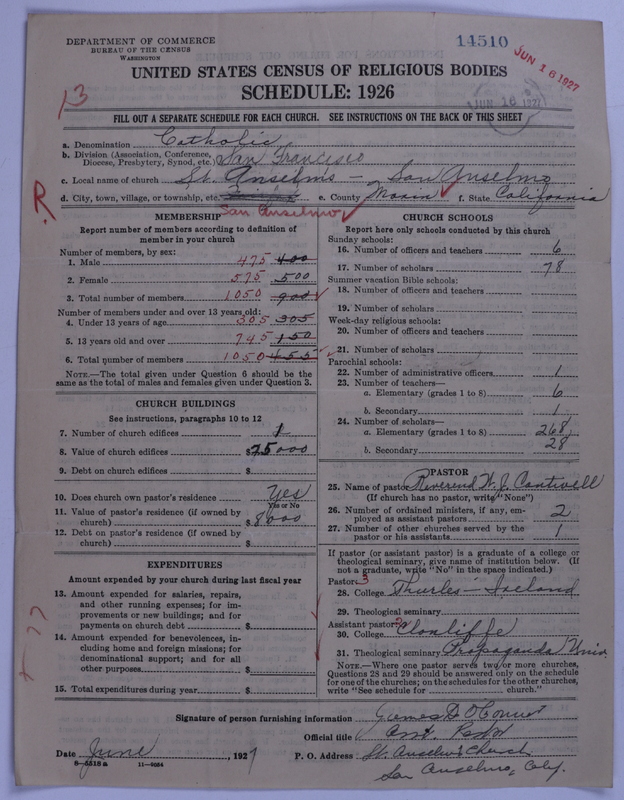 DEPARTMENT OF COMMERCE
BUREAU OF THE CENSUS
WASHINGTON
14510
JUN 16 1927
JUN 16 1927
UNITED STATES CENSUS OF RELIGIOUS BODIES
SCHEDULE: 1926
FILL OUT A SEPARATE SCHEDULE FOR EACH CHURCH. SEE INSTRUCTIONS ON THE BACK OF THIS SHEET
a. Denomination Catholic
b. Division (Association, Conference, Diocese, Presbytery, Synod, etc.) San Francisco
c. Local name of church St. Anselms - San Anselmo
d. City, town, village, or township, etc. e. County Marin f. State California
San Anselmo
R
MEMBERSHIP
Report number of members according to definition of member in your church
Number of members, by sex:
1. Male 475 400
2. Female 575 500
3. Total number of members 1050 900
Number of members under and over 13 years old:
4. Under 13 years of age 305 305
5. 13 years old and over 745 150
6. Total number of members 1050 455
NOTE.—The total given under Question 6 should be the same as the total of males and females given under Question 3.
CHURCH BUILDINGS
See instructions, paragraphs 10 to 12
7. Number of church edifices 1
8. Value of church edifices $25000
9. Debt on church edifices $
10. Does church own pastor's residence Yes
Yes or No
11. Value of pastor's residence (if owned by church) $8000
12. Debt on pastor's residence (if owned by church) $
EXPENDITURES
Amount expended by your church during last fiscal year
13. Amount expended for salaries, repairs, and other running expenses; for improvements or new buildings; and for payments on church debt $
14. Amount expended for benevolences, including home and foreign missions; for denominational support; and for all other purposes $
15. Total expenditures during year $
CHURCH SCHOOLS
Report here only schools conducted by this church
Sunday schools:
16. Number of officers and teachers 6
17. Number of scholars 78
Summer vacation Bible schools:
18. Number of officers and teachers
19. Number of scholars
Week-day religious schools:
20. Number of officers and teachers
21. Number of scholars
Parochial schools:
22. Number of administrative officers 1
23. Number of teachers—
a. Elementary (grades 1 to 8) 6
b. Secondary 1
24. Number of scholars—
a. Elementary (grades 1 to 8) 268
b. Secondary 28
PASTOR
25. Name of pastor Reverend W. J. Cantwell
(If church has no pastor, write "None")
26. Number of ordained ministers, if any, employed as assistant pastors 2
27. Number of other churches served by the pastor or his assistants 1
If pastor (or assistant pastor) is a graduate of a college or theological seminary, give name of institution below. (If not a graduate, write "No" in the space indicated.)
Pastor: 3
28. College Thurles - Ireland
29. Theological seminary
Assistant pastor:
30. College Clonliffe
31. Theological seminary Propaganda Univ.
NOTE.—Where one pastor serves two or more churches, Questions 28 and 29 should be answered only on the schedule for one of the churches; on the schedules for the other churches, write "See schedule for church."
Signature of person furnishing information James D O'Connor
Official title Asst. Pastor
Date June, 1927 P. O. Address St. Anselm's Church
San Anselmo, Calif.
8-5518a 11-9054